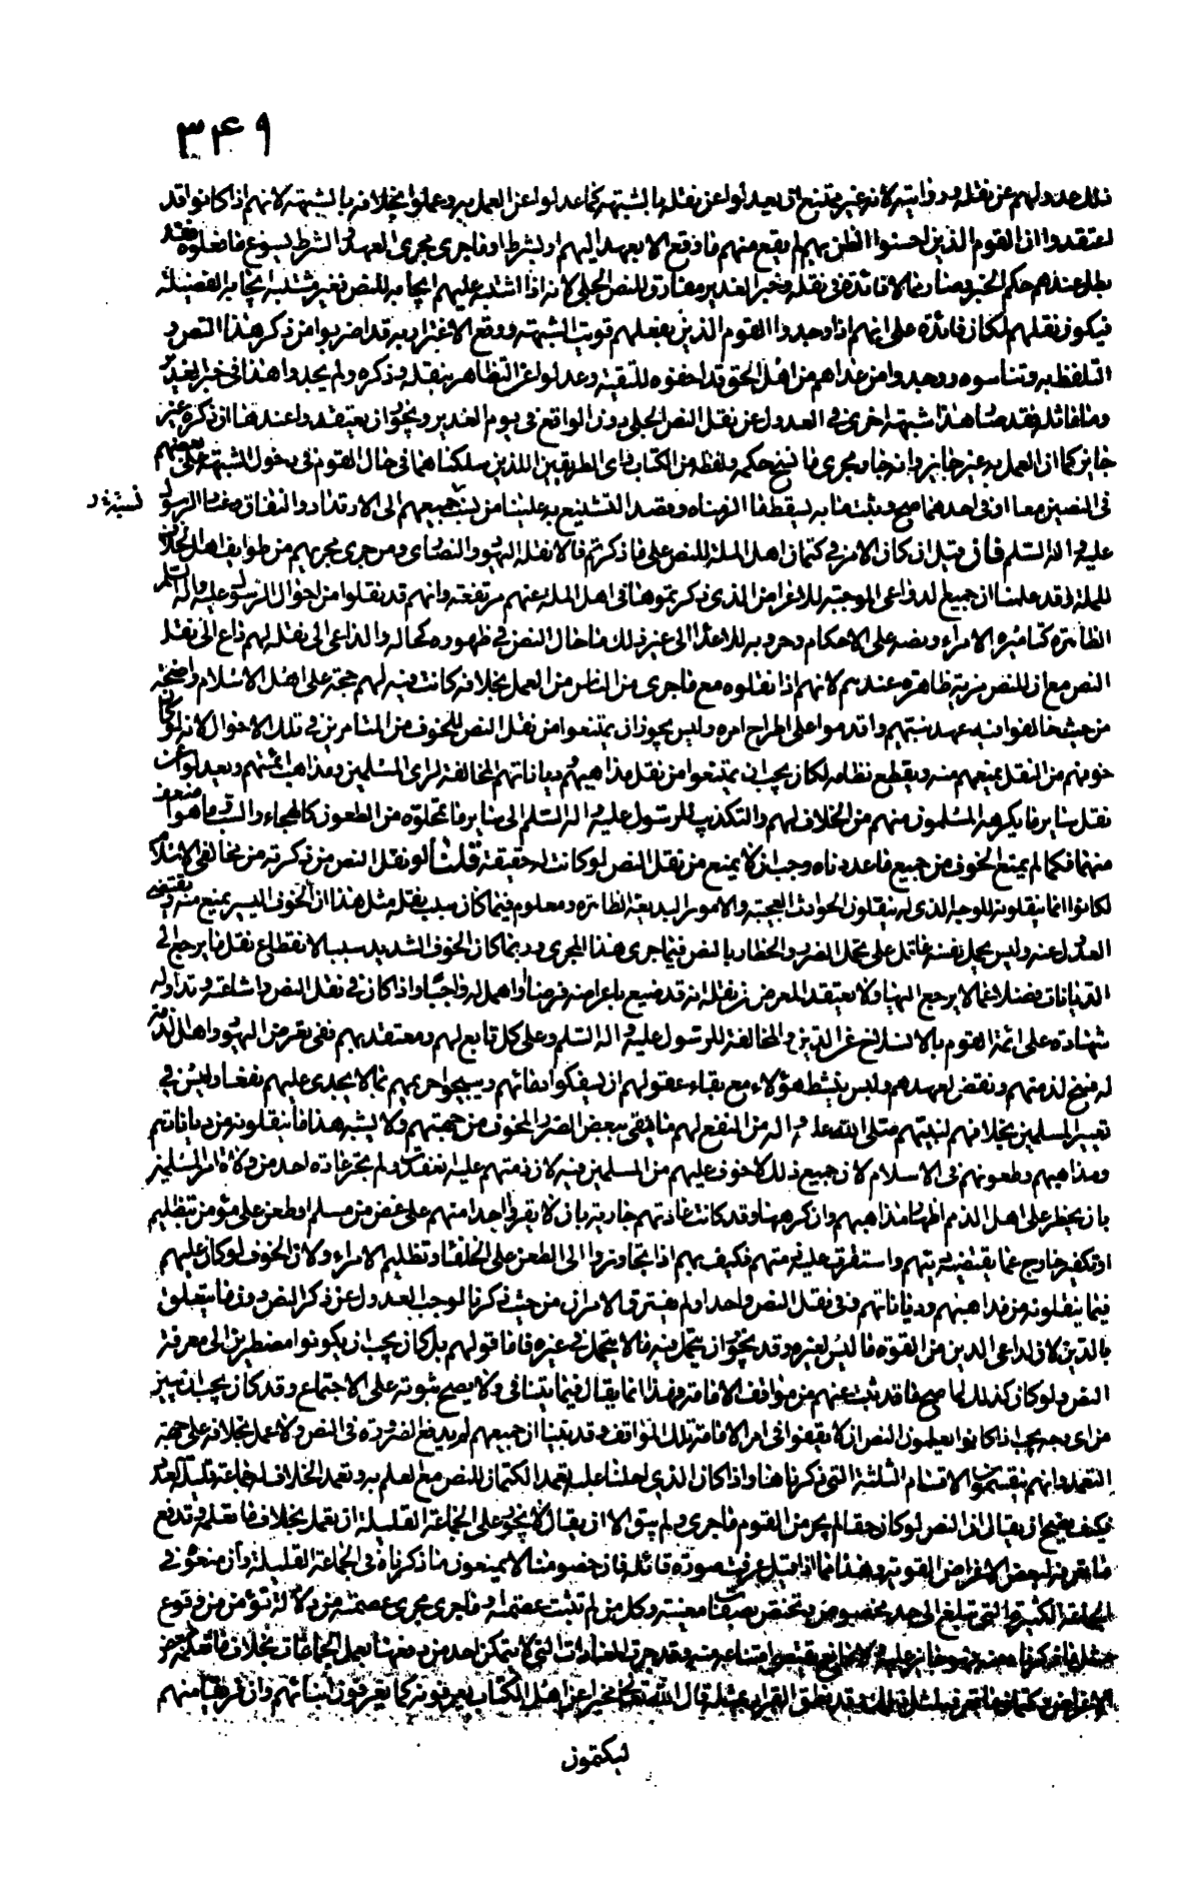 ٣٤٩
ذلك عدولهم عن نقله وروايته لأنه غير ممتنع ان يعدلوا عن نقله بالشبهة كما عدلوا عن العمل به وعملوا بخلافه بالشبهة لانهم اذا كانوا قد
اعتقدوا ان القوم الذين احسنوا الظن بهم لم يقع منهم ما وقع الا بعهد اليهم او لشرط او ما جرى مجرى العهد والشرط يسوغ ما فعلوه فقد
بطل عندهم حكم الخبر وصار مما لا فائدة في نقله وخبر الغدير مفارق للنص الجلي لانه اذا اشتبه عليهم ايجابه للنص فغير مشتبه ايجابه الفضيلة
فيكون نقلهم لمكان فائدة على انهم اذا وجدوا القوم الذين بفعلهم قويت الشبهة ووقع الاغترار به قد اضربوا من ذكر هذا النص و
التلفظ به وتناسوه ووجدوا من عداهم من اهل الحق قد اخفوه للتقية وعدلوا عن التظاهر بنقله وذكره ولم يجدوا هذا في خبر الغدير
وما ماثله فقد صار هذا شبهة اخرى في العدول عن نقل النص الجلي دون الواقع في يوم الغدير ويجوز ان يعتقدوا عند هذا ان ذكره غير
جايز كما ان العمل به غير جايز وانه جار مجرى ما نسخ حكمه ولفظه من الكتاب فاي الطريقين اللذين سلكناهما في حال القوم في دخول الشبهة على بعضهم
في النصين معا او في احدهما صح وثبت منا به ليقط ما الزمناه وقصد التشنيع به علينا من نسب جميعهم الى الارتداد والنفاق وعناد الرسول
نسبة خ ر
عليه واله السلم فان قيل ان كان الامر في كتمان اهل الملة للنص على ما ذكرتم فالا نقله اليهود والنصارى ومن جرى مجريهم من طوايف اهل الخلاف
للملة فقد علمنا ان جميع الدواعي الموجبة للاغراض الذي ذكرتموها في اهل الملة عنهم مرتفعة وانهم قد نقلوا من احوال الرسول عليه واله السلم
الظاهرة كتاميره الامراء ونصه على الاحكام وحروبه للاعداء الى غير ذلك مما حال النص في ظهوره كحاله والداعي الى نقله لهم داع الى نقل
النص مع ان للنص مزية ظاهرة عندهم لانهم اذا نقلوه مع ما جرى من الناس من العمل بخلافه كانت فيه لهم حجة على اهل الاسلام واضحة
من حيث خالفوا فيه عهد نبيهم واقدموا على اطراح امره وليس يجوز ان يمتنعوا من نقل النص للخوف من المتامرين في تلك الاحوال لانه لو كان
خوفهم من النقل يمنعهم منه ويقطع نظامه لكان يجب ان يمتنعوا من نقل مذاهبهم ودياناتهم المخالفة لراي المسلمين ومذاهب ائمتهم ويعدلوا عن
نقل ساير ما يكرهه المسلمون منهم من الخلاف لهم والتكذيب للرسول عليه واله السلم الى ساير ما تحلوه من الطعون كالهجاء والسب وما هو اضعف
منهما فكما لم يمنع الخوف من جميع ما عددناه وجب ان لا يمنع من نقل النص لو كانت له حقيقة قلنا لو نقل النص من ذكرته من مخالفي الاسلام
لكانوا انما ينقلونه للوجه الذي له ينقلون الحوادث العجيبة والامور البديعة الظاهرة ومعلوم فيما كان سبب نقله مثل هذا ان الخوف اليسير يمنع منه ويقتضي
العدول عنه وليس يحمل نفسه عاقل على تحمل الضرر والخطار بالنص فيما جرى هذا المجرى وربما كان الخوف الشديد سببا لانقطاع نقل ما يرجع الى
الديانات فضلا عما لا يرجع اليها ولا يعتقد المعرض عن نقله انه قد ضيع باعراضه فرضا واهمل له واجبا واذا كان في نقل النص واشاعته وتداوله
شهادة على ائمة القوم بالانسلاخ عن الدين والمخالفة للرسول عليه واله السلم وعلى كل تابع لهم ومعتقد بهم ففي تعرض اليهود واهل الذمة
له فسخ لذمتهم ونقض لعهدهم وليس ينشط هؤلاء مع بقاء عقولهم ان يسفكوا دمائهم ويبيحوا حريمهم بما لا يجدى عليهم نفعا وليس في
تعيير المسلمين بخلافهم لنبيهم صلى الله عليه واله من النفع لهم ما يفي ببعض الضرر المخوف من جهتهم ولا يشبه هذا ما ينقلونه من دياناتهم
ومذاهبهم وطعونهم في الاسلام لان جميع ذلك لا خوف عليهم من المسلمين فيه لان ذمتهم عليه انعقدت ولم تجر عادة احد من ولاة امر المسلمين
بان يحظر على اهل الذم اظهار مذاهبهم وان كرهها وقد كانت عادتهم جارية بان لا يقروا احدا منهم على غض من مسلم او طعن على مؤمن بتظليم
او تكفير خارج عما يقتضيه دينهم واستقرت عليه ذمتهم فكيف بهم اذا تجاوزوا الى الطعن على الخلفاء وتظليم الامراء ولان الخوف لو كان عليهم
فيما ينقلونه من مذاهبهم ودياناتهم وفي نقل النص واحدا ولم يفترق الامران من حيث ذكرنا لوجب العدول عن ذكر النص دون ما يتعلق
بالدين لان لداعي الدين من القوة ما ليس لغيره وقد يجوز ان يتحمل فيه ما لا يتحمل في غيره فاما قولهم بل كان يجب ان يكونوا مضطرين الى معرفة
النص ولو كان كذلك لما صح ما قد ثبت عنهم من مواقف الامامة وهذا انما يقال فيما يتنافى ولا يصح ثبوته على الاجتماع وقد كان يجب ان يبين
من اي وجه يجب اذا كانوا يعلمون النص ان لا يقفوا في امر الامامة تلك المواقف وقد بينا ان جميعهم لم يدفع الضرورة في النص ولا عمل بخلافه على جهة
التعمد وانهم ينقسمون الاقسام الثلثة التي ذكرناها واذا كان الذي احلنا عليه تعمد الكتمان للنص مع العلم به وتعمد الخلاف له جماعة قليلة العدد
فكيف يصح ان يقال ان النص لو كان حقا لم يجر من القوم ما جرى ولم يبق الا ان يقال لا يجوز على الجماعة القليلة ان تعمل بخلاف ما تعلمه وتدفع
ما تعرفه لبعض الاغراض القوية وهذا مما اذا قيل عرفت صورة قائله فان خصومنا لا يمنعون مما ذكرناه في الجماعة القليلة وان منعوه في
الجماعة الكثيرة التي تبلغ الى حد مخصوص وتختص بصفات معينة وكل من لم تثبت عصمته وما جرى مجرى عصمته من دلالة تؤمن من وقوع
مثل ما ذكرناه منه فهو جائز عليه لا مانع يقتضي امتناعه منه وقد جرت العادات التي لا يتمكن احد من دفعها بعمل الجماعات بخلاف ما تعلمه لغرض
الاغراض وكتمان ما تعرفه لمثل ذلك وقد نطق القران بمثله قال الله تعالى مخبرا عن اهل الكتاب يعرفونه كما يعرفون ابنائهم وان فريقا منهم
ليكتمون